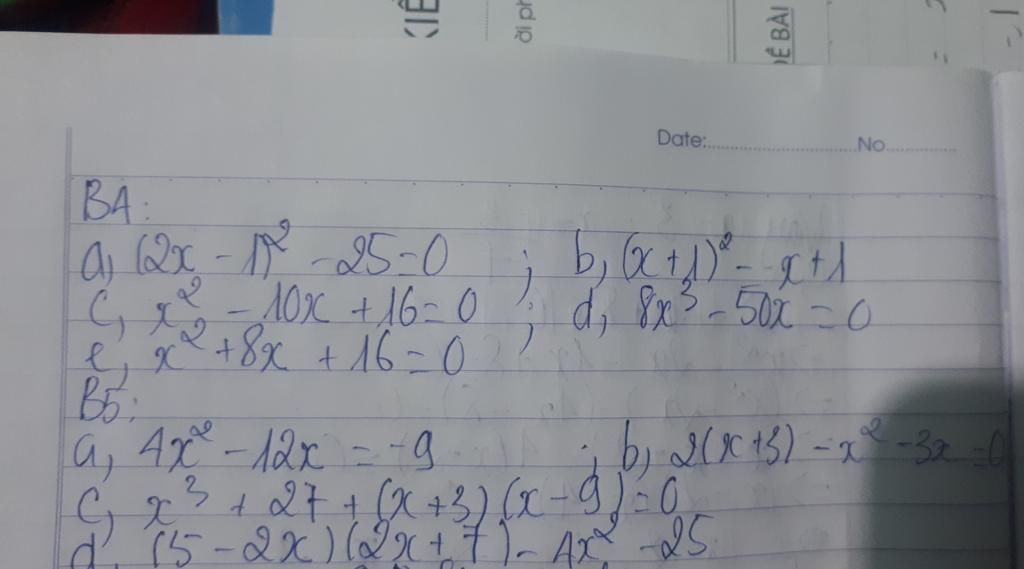 KIỂ
ĐỀ BÀI
Date: No
B4:
a, (2x - 1)² - 25 = 0 ; b, (x+1)² - x+1
c, x² - 10x + 16 = 0 ; d, 8x³ - 50x = 0
e, x² + 8x + 16 = 0
B5:
a, 4x² - 12x = -9 ; b, 2(x+3) - x² - 3x = 0
c, x³ + 27 + (x+3)(x-9) = 0
d, (5 - 2x)(2x+7) - 4x² - 25